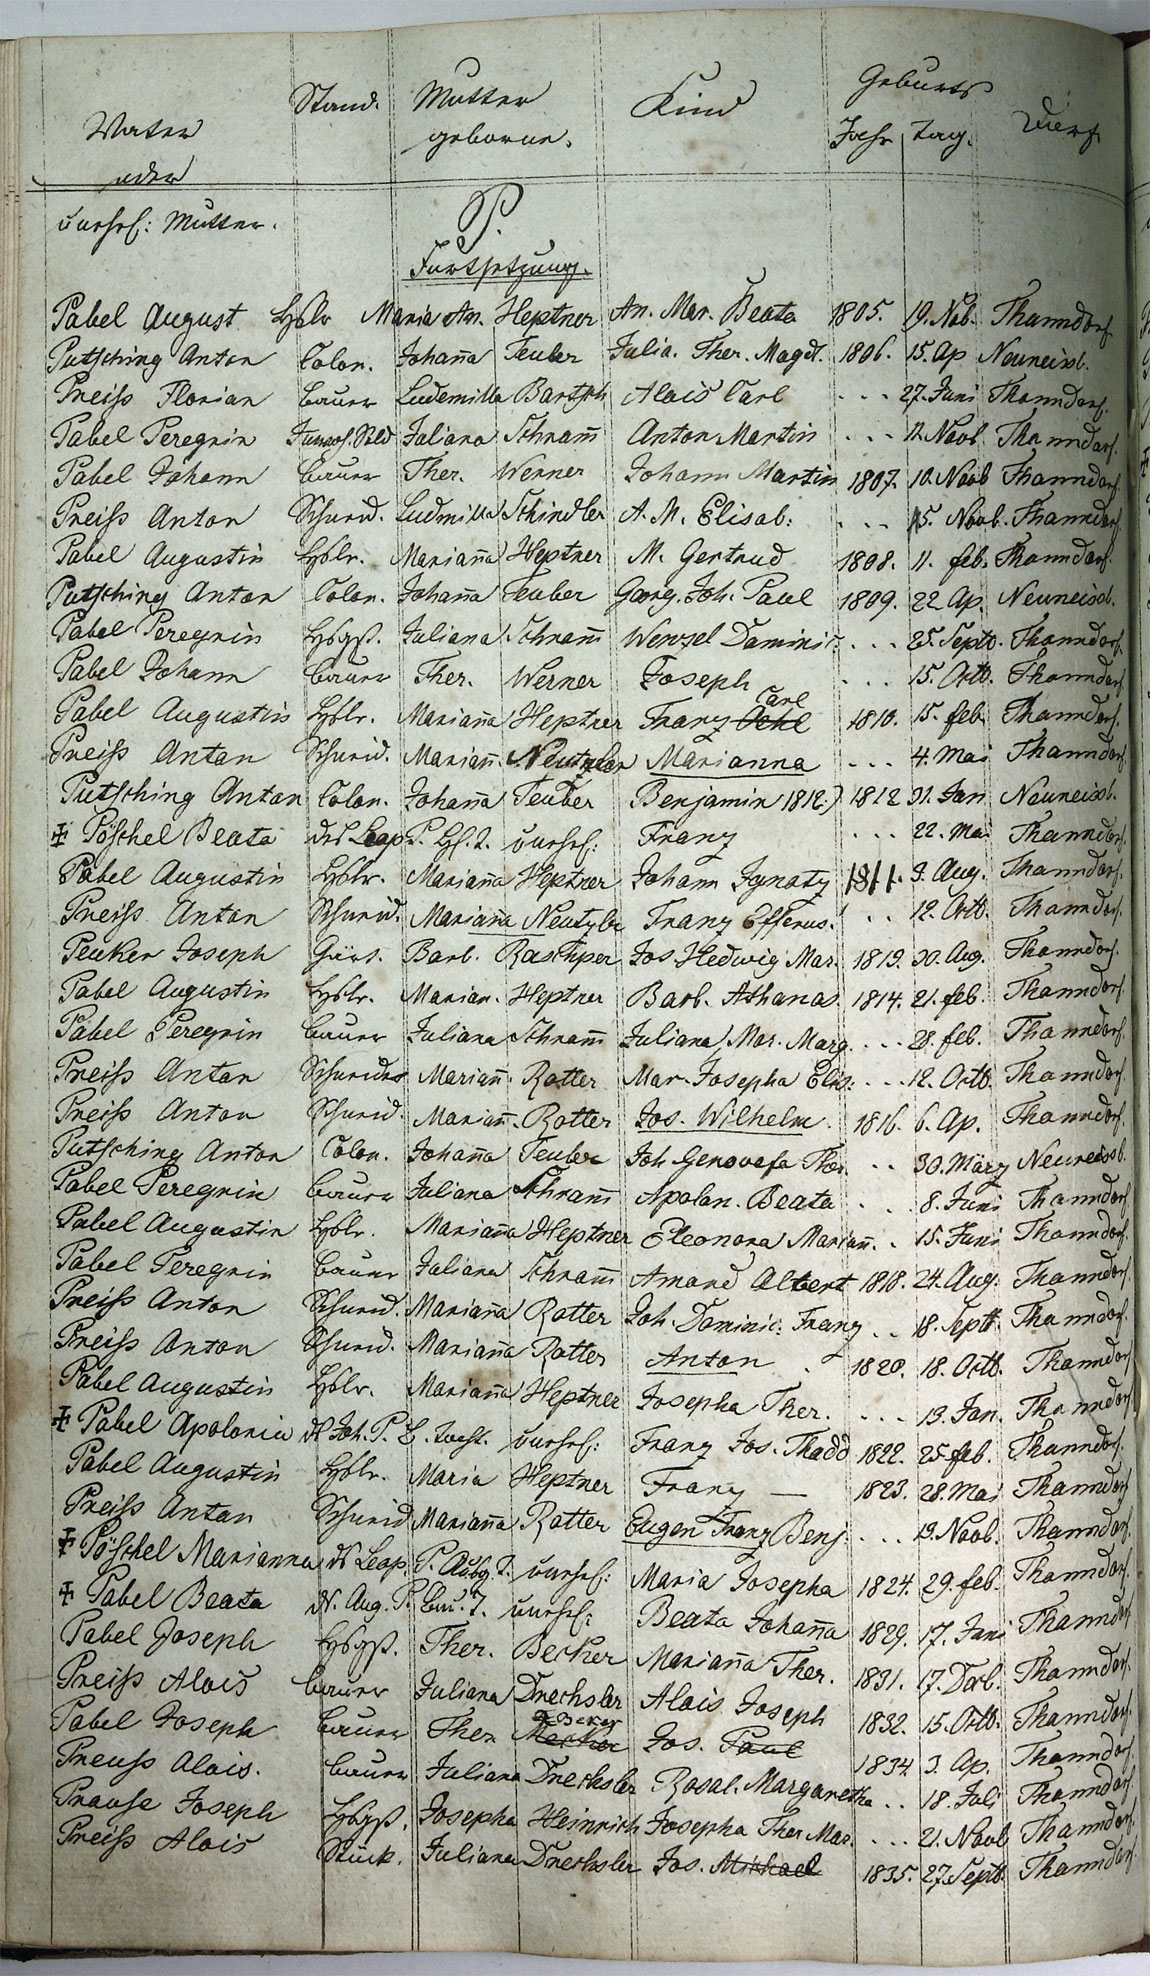 Vater oder unehel: Mutter. Stand. Mutter geborne. Kind Geburts Jahr Tag. Dorf
P.
Fortsetzung.
Pabel August Hßlr Maria An. Heptner An. Mar. Beata 1805. 19. Nob. Thanndorf
Putsching Anton Colon. Johan̄a Teuber Julia. Ther. Magd. 1806. 15. Ap Neuneisd.
Preiss Florian Bauer Ludemilla Bartsch Alois Carl . . . 27. Juni Thanndorf.
Pabel Peregrin Juliana Schram̄ Anton Martin . . . 11. Novb. Thanndorf.
Pabel Johann Bauer Ther. Werner Johann Martin 1807. 10. Novb Thanndorf
Preiss Anton Schneid. Ludmilla Schindler A. M. Elisab: . . . 15. Novb. Thanndorf
Pabel Augustin Hßlr. Marian̄a Heptner M. Gertrud 1808. 11. feb. Thanndorf.
Putsching Anton Colon. Johan̄a Teuber Georg. Joh. Paul 1809. 22. Ap. Neuneisd.
Pabel Peregrin Juliana Schram̄ Wenzel Dominic. . . . 25. Septb. Thanndorf.
Pabel Johann Bauer Ther. Werner Joseph . . . 15. Octb. Thanndorf.
Pabel Augustin Hßlr. Marian̄a Heptner Franz Carl 1810. 15. feb. Thanndorf.
Preiss Anton Schneid. Marian̄. Neutzler Marianna . . . 4. Mai Thanndorf
Putsching Anton Colon. Johan̄a Teuber Benjamin 1812.) 1812 31. Jan Neuneisd.
Pöschel Beata des Leop. P. unehel: Franz . . . 22. Mai Thanndorf.
Pabel Augustin Hßlr. Marian̄a Heptner Johann Ignatz 1811. 3. Aug. Thanndorf.
Preiss Anton Schneid. Mariana Franz . . . 12. Octb. Thanndorf.
Peuker Joseph Gärt. Barb. Raschper Jos. Hedwig Mar. 1813. 30. Aug. Thanndorf.
Pabel Augustin Hßlr. Marian. Heptner Barb. Athanas. 1814. 21. feb. Thanndorf.
Pabel Peregrin Bauer Juliana Schram̄ Juliana Mar. Marg. . . . 28. feb. Thanndorf.
Preiss Anton Schneider Marian̄. Rotter Mar. Josepha Elis. . . . 12. Octb. Thanndorf.
Preiss Anton Schneid. Marian̄. Rotter Jos. Wilhelm. 1816. 6. Ap. Thanndorf.
Putsching Anton Colon. Johan̄a Teuber Joh. Genovefa Ther. . . 30. März Neuneisd.
Pabel Peregrin Bauer Juliana Schram̄ Apolon. Beata . . . 8. Juni Thanndorf
Pabel Augustin Hßlr. Marian̄a Heptner Eleonora Marian̄. . . 15. Juni Thanndorf.
Pabel Peregrin Bauer Juliana Schram̄ Amand Albert 1818. 24. Aug. Thanndorf.
Preiss Anton Schneid. Marian̄a Rotter Joh. Dominic. Franz . . 18. Septb. Thanndorf.
Preiss Anton Schneid. Marian̄a Rotter Anton 1820. 18. Octb. Thanndorf.
Pabel Augustin Hßlr. Marian̄a Heptner Josepha Ther. . . . 13. Jan. Thanndorf
Pabel Apolonia d. Joh. P. B. Tocht. unehel: Franz Jos. Thadd 1822. 25. feb. Thanndorf.
Pabel Augustin Hßlr. Maria Heptner Franz — 1823. 28. Mai Thanndorf
Preiss Anton Schneid Marian̄a Rotter Eugen Franz Benj. . . . 13. Novb. Thanndorf.
Pöschel Marianna ds Leop. P. unehel: Maria Josepha 1824. 29. feb. Thanndorf.
Pabel Beata d. Aug. P. unehel: Beata Johan̄a 1829. 17. Juni Thanndorf
Pabel Joseph Ther. Becker Marian̄a Ther. 1831. 17. Decb. Thanndorf.
Preiss Alois Bauer Juliana Drechsler Alois Joseph 1832. 15. Octb. Thanndorf.
Pabel Joseph Bauer Ther. Becker Jos. Paul 1834. 3. Ap. Thanndorf.
Preuss Alois. Bauer Juliana Drechsler Rosal. Margaretha . . 18. Juli Thanndorf
Prause Joseph Josepha Heinrich Josepha Ther Mar. . . . 21. Novb Thanndorf.
Preiss Alois Stück. Juliana Drechsler Jos. Michael 1835. 27. Septb. Thanndorf.